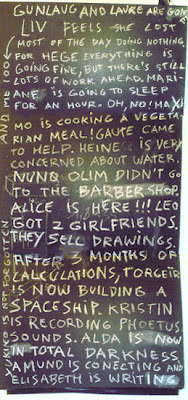 GUNLAUG AND LAVRE ARE GON
LIV FEELS SHE LOST
MOST OF THE DAY DOING NOTHING
FOR HEGE EVERYTHING I
GOING FINE, BUT THERE'S STILL
LOTS OF WORK AHEAD. MARI-
ANE IS GOING TO SLEEP
FOR AN HOUR. OH, NO! MAXI
MO IS COOKING A VEGETA-
RIAN MEAL! GAUTE CAME
TO HELP. HEINE IS VERY
CONCERNED ABOUT WATER.
NUNO OLIM DIDN'T GO
TO THE BARBER SHOP.
ALICE IS HERE!!! LEO
GOT 2 GIRLFRIENDS.
THEY SELL DRAWINGS.
AFTER 3 MONTHS OF
CALCULATIONS, TORGEIR
IS NOW BUILDING A
SPACESHIP. KRISTIN
IS RECORDING PHOETUS
SOUNDS. ALDA IS NOW
IN TOTAL DARKNESS.
AMUND IS CONECTING AND
ELISABETH IS WRITING
YUKIKO IS NOT FORGOTTEN
AND ME TOO